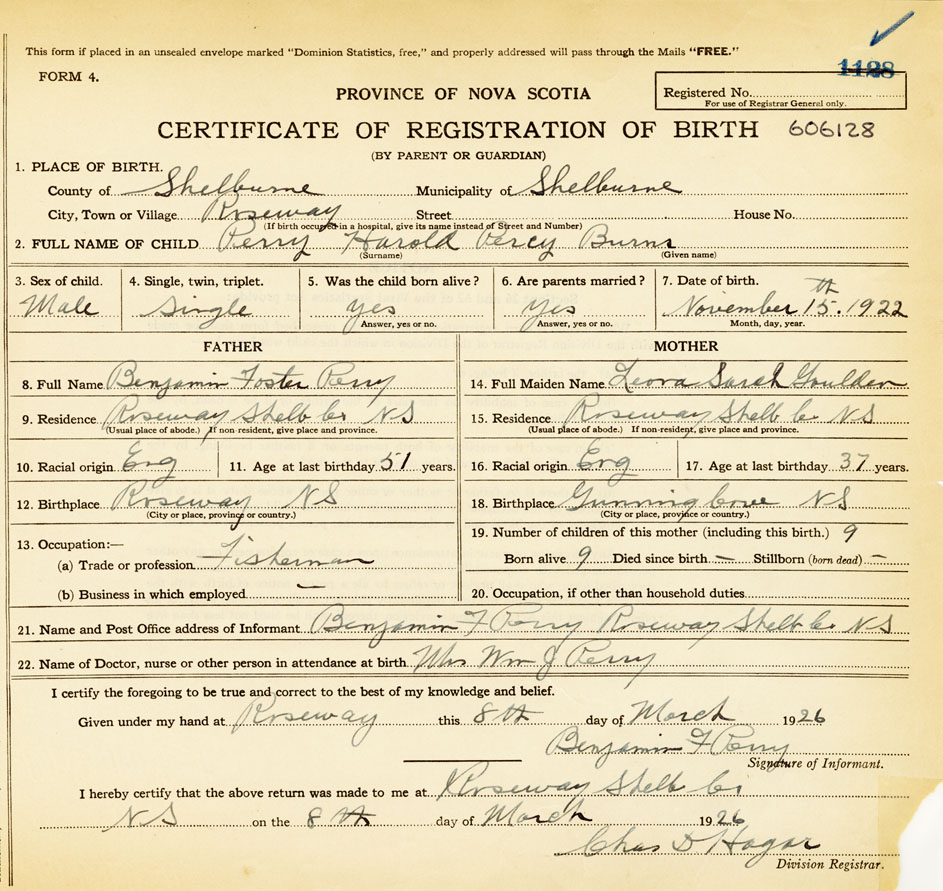 This form if placed in an unsealed envelope marked "Dominion Statistics, free," and properly addressed will pass through the Mails "FREE."
1128
FORM 4.
Registered No.
For use of Registrar General only.
PROVINCE OF NOVA SCOTIA
CERTIFICATE OF REGISTRATION OF BIRTH 606128
(BY PARENT OR GUARDIAN)
1. PLACE OF BIRTH.
County of Shelburne Municipality of Shelburne
City, Town or Village Roseway Street House No.
(If birth occurred in a hospital, give its name instead of Street and Number)
2. FULL NAME OF CHILD Perry Harold Percy Burns
(Surname) (Given name)
3. Sex of child. 4. Single, twin, triplet. 5. Was the child born alive? 6. Are parents married? 7. Date of birth.
Male Single yes yes November 15th. 1922
Answer, yes or no. Answer, yes or no. Month, day, year.
FATHER MOTHER
8. Full Name Benjamin Foster Perry 14. Full Maiden Name Leora Sarah Goulden
9. Residence Roseway Shelb Co NS 15. Residence Roseway Shelb Co NS
(Usual place of abode.) If non-resident, give place and province. (Usual place of abode.) If non-resident, give place and province.
10. Racial origin Eng 11. Age at last birthday 51 years. 16. Racial origin Eng 17. Age at last birthday 37 years.
12. Birthplace Roseway NS 18. Birthplace Gunning Cove NS
(City or place, province or country.) (City or place, province or country.)
13. Occupation:— 19. Number of children of this mother (including this birth.) 9
(a) Trade or profession Fisherman Born alive 9 Died since birth — Stillborn (born dead) —
(b) Business in which employed — 20. Occupation, if other than household duties
21. Name and Post Office address of Informant Benjamin F Perry Roseway Shelb Co NS
22. Name of Doctor, nurse or other person in attendance at birth Mrs Wm J Perry
I certify the foregoing to be true and correct to the best of my knowledge and belief.
Given under my hand at Roseway this 8th day of March 1926
Benjamin F Perry
Signature of Informant.
I hereby certify that the above return was made to me at Roseway Shelb Co
NS on the 8th day of March 1926
Chas D Hagar
Division Registrar.